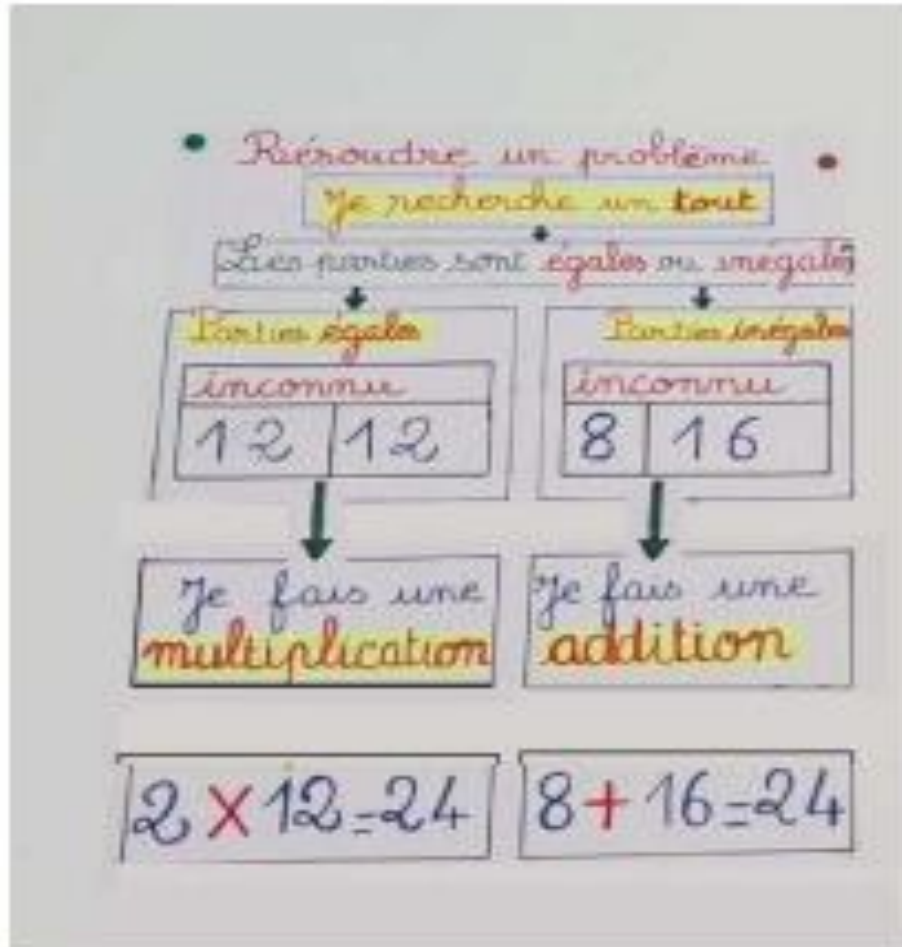 Résoudre un problème
Je recherche un tout
Les parties sont égales ou inégales
Parties égales
inconnu
12 12
Je fais une
multiplication
2 × 12 = 24
Parties inégales
inconnu
8 16
Je fais une
addition
8 + 16 = 24